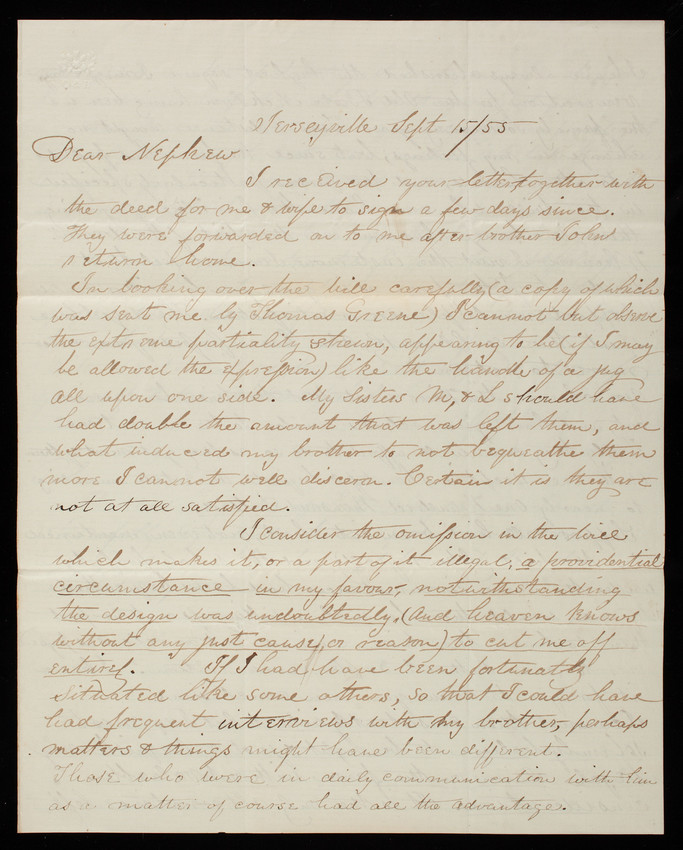 Jerseyville Sept 15/55
Dear Nephew
I received your letter together with
the deed for me & wife to sign a few days since.
They were forwarded on to me after brother John
return home.
In looking over the will carefully (a copy of which
was sent me by Thomas Greene) I cannot but observe
the extreme partiality shewn, appearing to be (if I may
be allowed the expression) like the handle of a jug
all upon one side. My Sisters M, & L should have
had double the amount that was left them, and
what induced my brother to not bequeathe them
more I cannot well discern. Certain it is they are
not at all satisfied.
I consider the omission in the will
which makes it, or a part of it illegal, a providential
circumstance in my favour, notwithstanding
the design was undoubtedly, (and heaven knows
without any just cause, or reason) to cut me off
entirely. If I had have been fortunately
situated like some others, so that I could have
had frequent interviews with my brother, perhaps
matters & things might have been different.
Those who were in daily communication with him
as a matter of course had all the advantage.